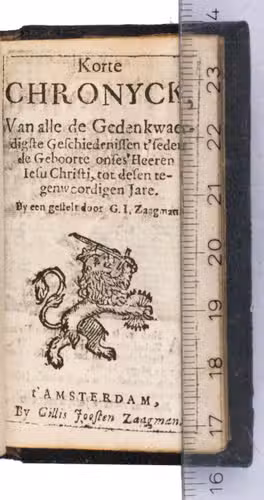 Korte
CHRONYCK,
Van alle de Gedenkwaer-
digste Geschiedenissen t'seder
de Geboorte onses Heeren
Iesu Christi, tot desen te-
genwoordigen Jare.
By een gestelt door G. I. Zaagman
t'AMSTERDAM,
By Gillis Joosten Zaagman.
24
23
22
21
20
19
18
17
16